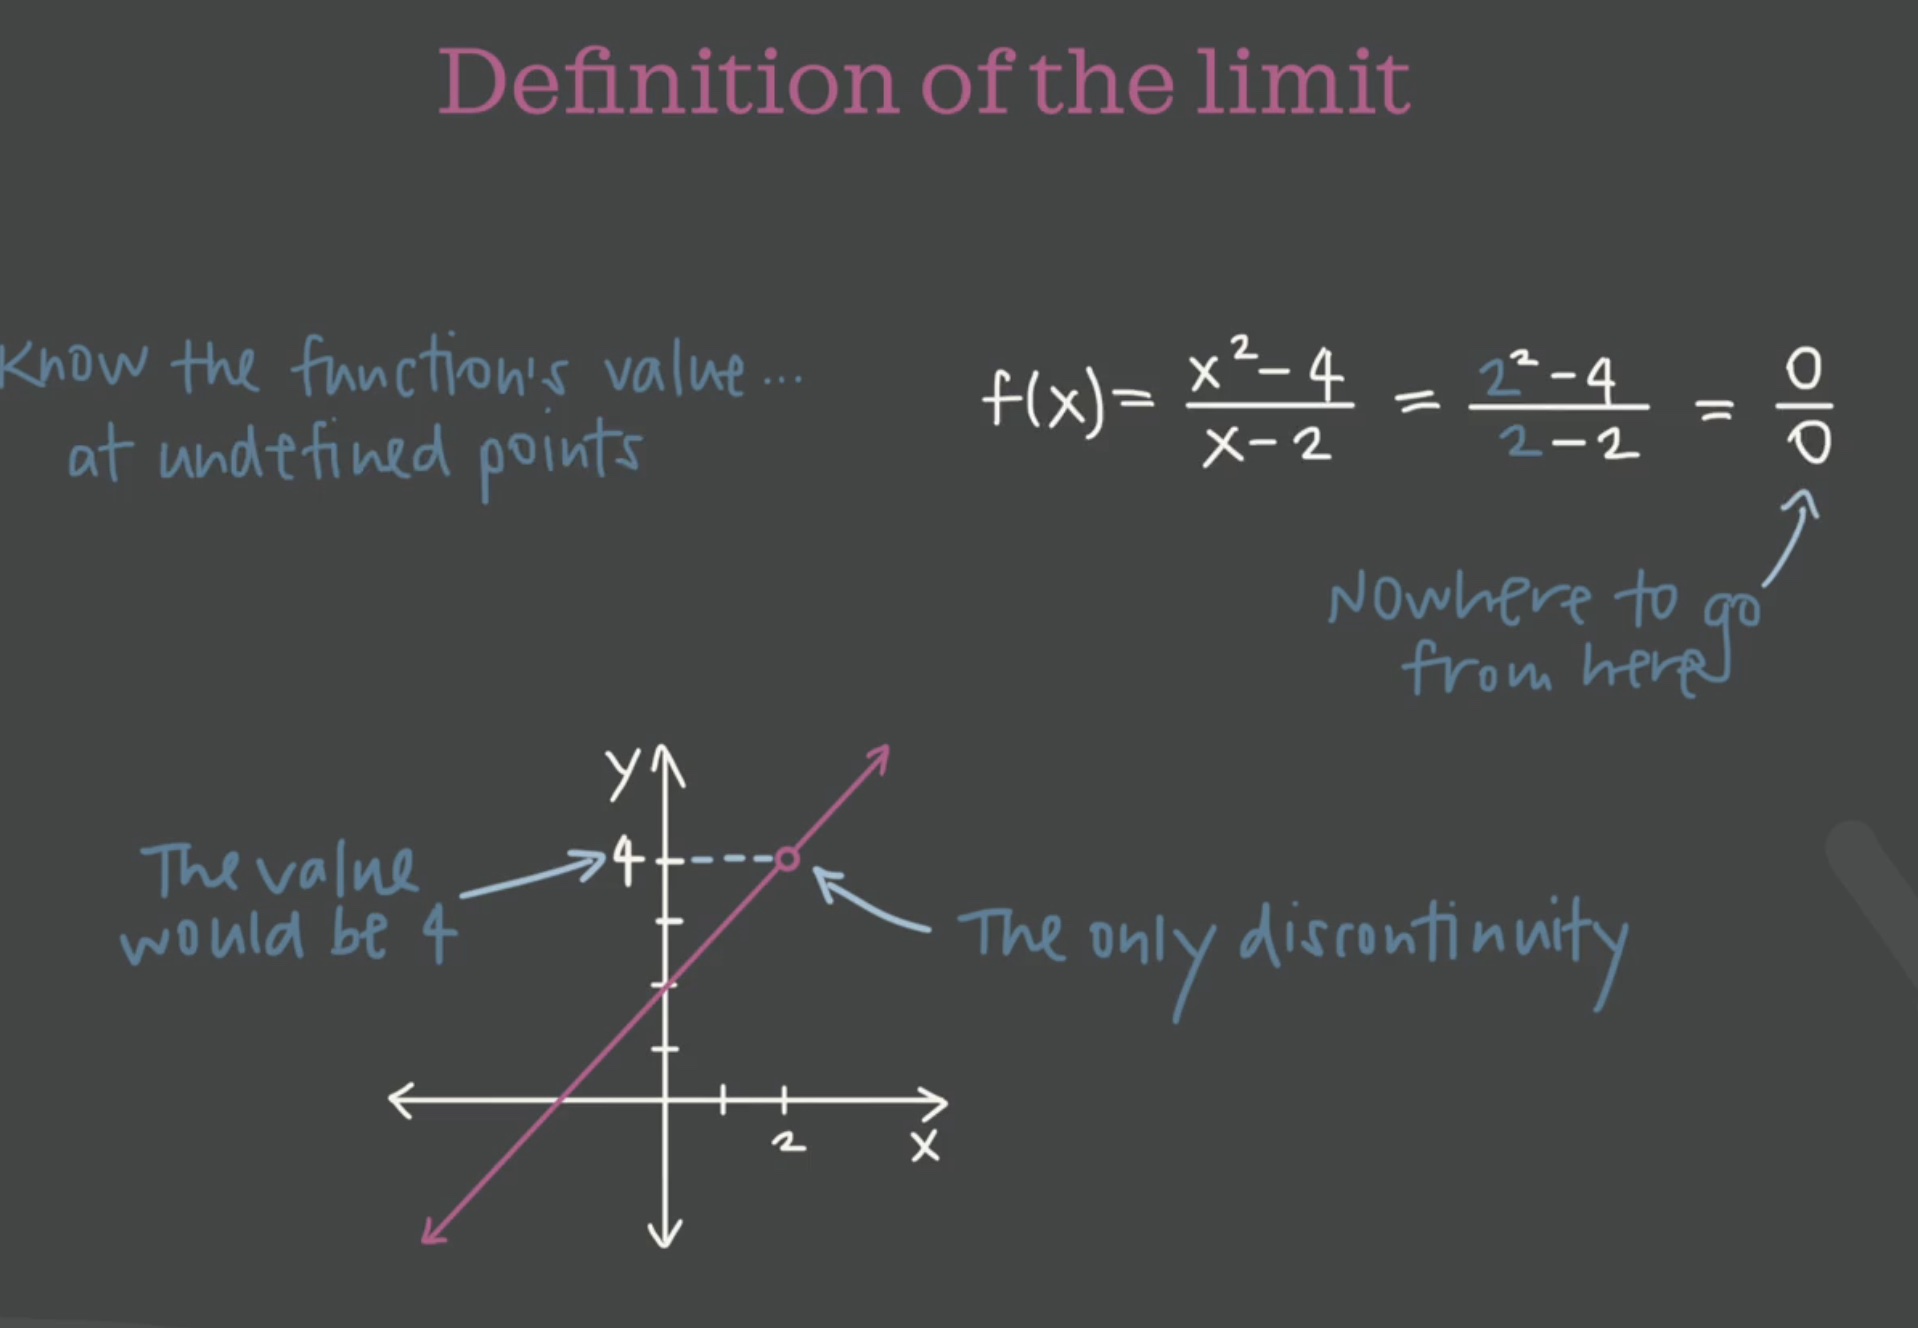 Definition of the limit
Know the function's value...
at undefined points
f(x) = x²-4 / x-2 = 2²-4 / 2-2 = 0/0
Nowhere to go
from here
y
4
The value
would be 4
The only discontinuity
2
x